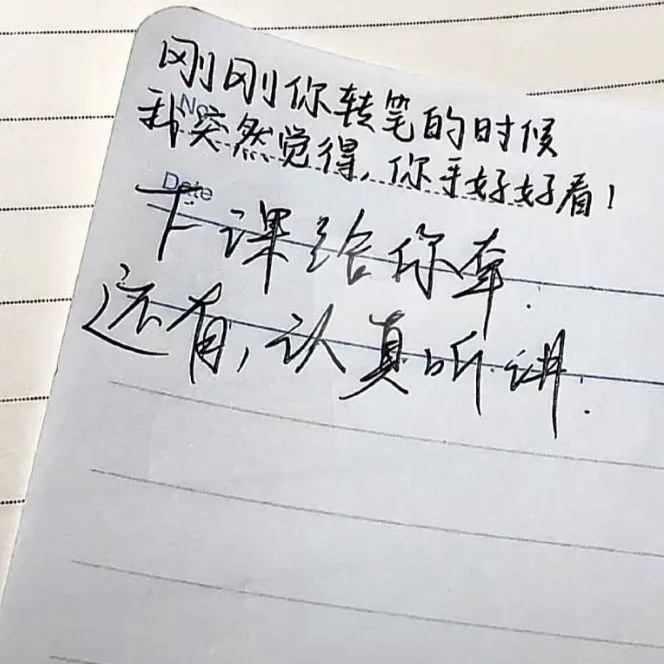 No.
刚刚你转笔的时候
我突然觉得,你手好好看!
Date
下课给你牵.
还有,认真听讲.